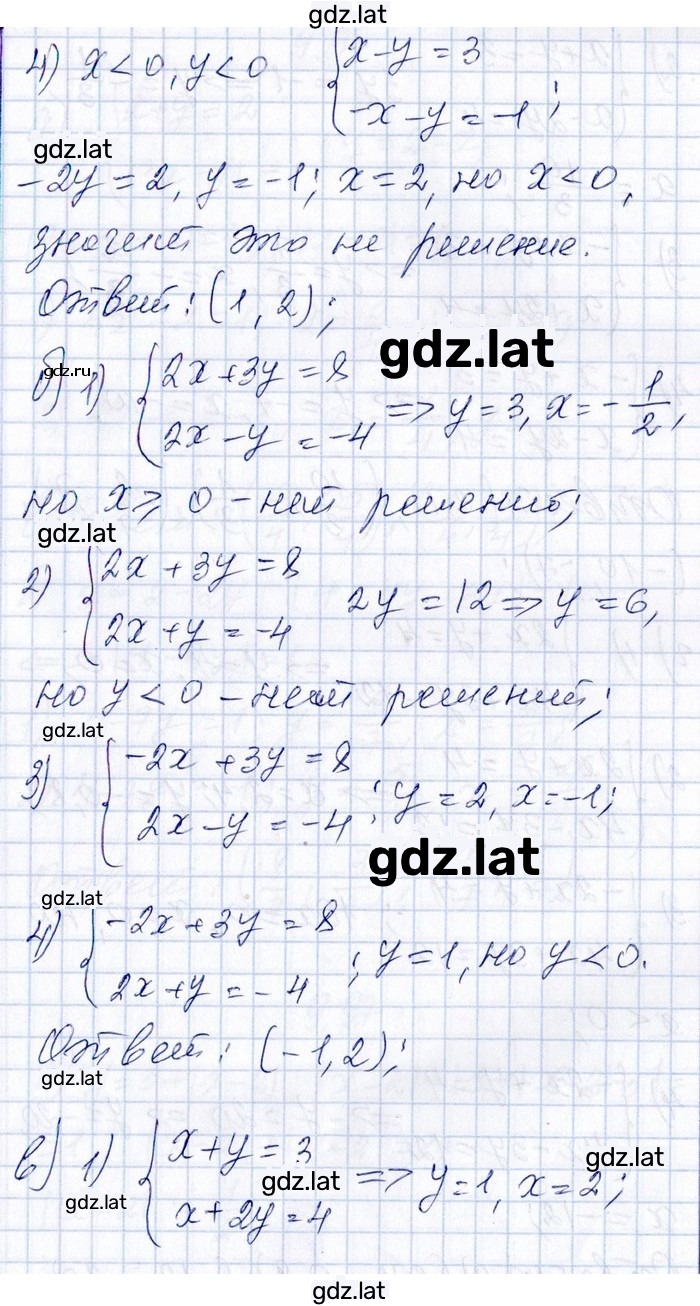 gdz.lat
4) x < 0, y < 0 { x - y = 3
-x - y = -1 ;
gdz.lat
-2y = 2, y = -1; x = 2, но x < 0,
значит это не решение.
Ответ: (1, 2);
gdz.lat
gdz.ru
б) 1) { 2x + 3y = 8
2x - y = -4 => y = 3, x = -1/2,
но x ⩾ 0 - нет решений;
gdz.lat
2) { 2x + 3y = 8
2x + y = -4 2y = 12 => y = 6,
но y < 0 - нет решений;
gdz.lat
3) { -2x + 3y = 8
2x - y = -4 ; y = 2, x = -1;
gdz.lat
gdz.lat
4) { -2x + 3y = 8
2x + y = -4 ; y = 1, но y < 0.
Ответ: (-1, 2);
gdz.lat
в) 1) { x + y = 3
x + 2y = 4 => y = 1, x = 2;
gdz.lat
gdz.lat
gdz.lat
gdz.lat